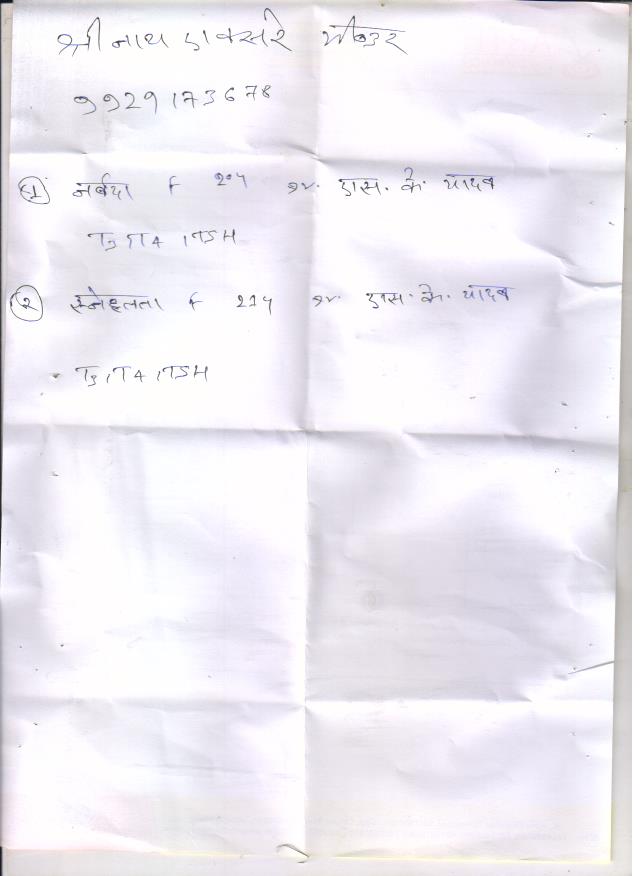 श्री नाथ एक्सरे भीण्डर
9929173678
(1) नर्बदा F डा. एस. के. यादव
T3, T4, TSH
(२) स्नेहलता F डा. एस. के. यादव
T3, T4, TSH